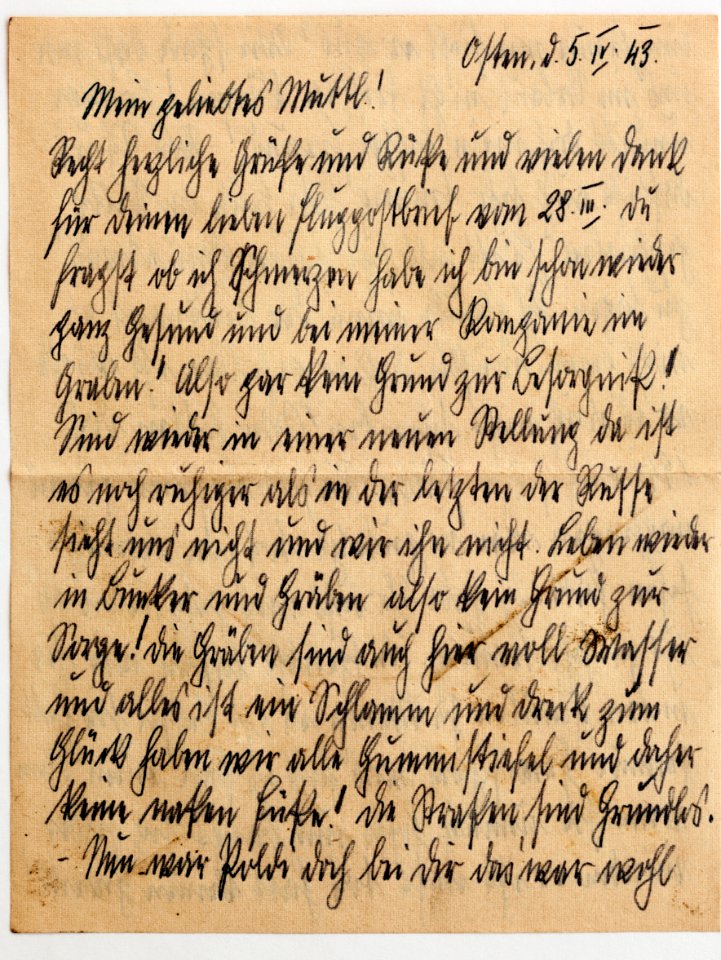 Osten, d. 5. IV. 43.
Mein geliebtes Muttl!
Recht herzliche Grüße und Küße und vielen dank
für deinen lieben Flugpostbrief vom 28. III. du
fragst ob ich Schmerzen habe ich bin schon wieder
ganz Gesund und bei meiner Kompanie im
Graben! Also gar kein Grund zur Besorgniß!
Sind wieder in einer neuen Stellung da ist
es noch ruhiger als in der letzten der Russe
sieht uns nicht und wir ihn nicht. Leben wieder
in Bunker und Gräben also kein Grund zur
Sorge! die Gräben sind auch hier voll Wasser
und alles ist ein Schlamm und dreck zum
Glück haben wir alle Gummistiefel und daher
keine naßen Füße! die Straßen sind Grundlos.
- Nun war Poldi doch bei dir das war wohl